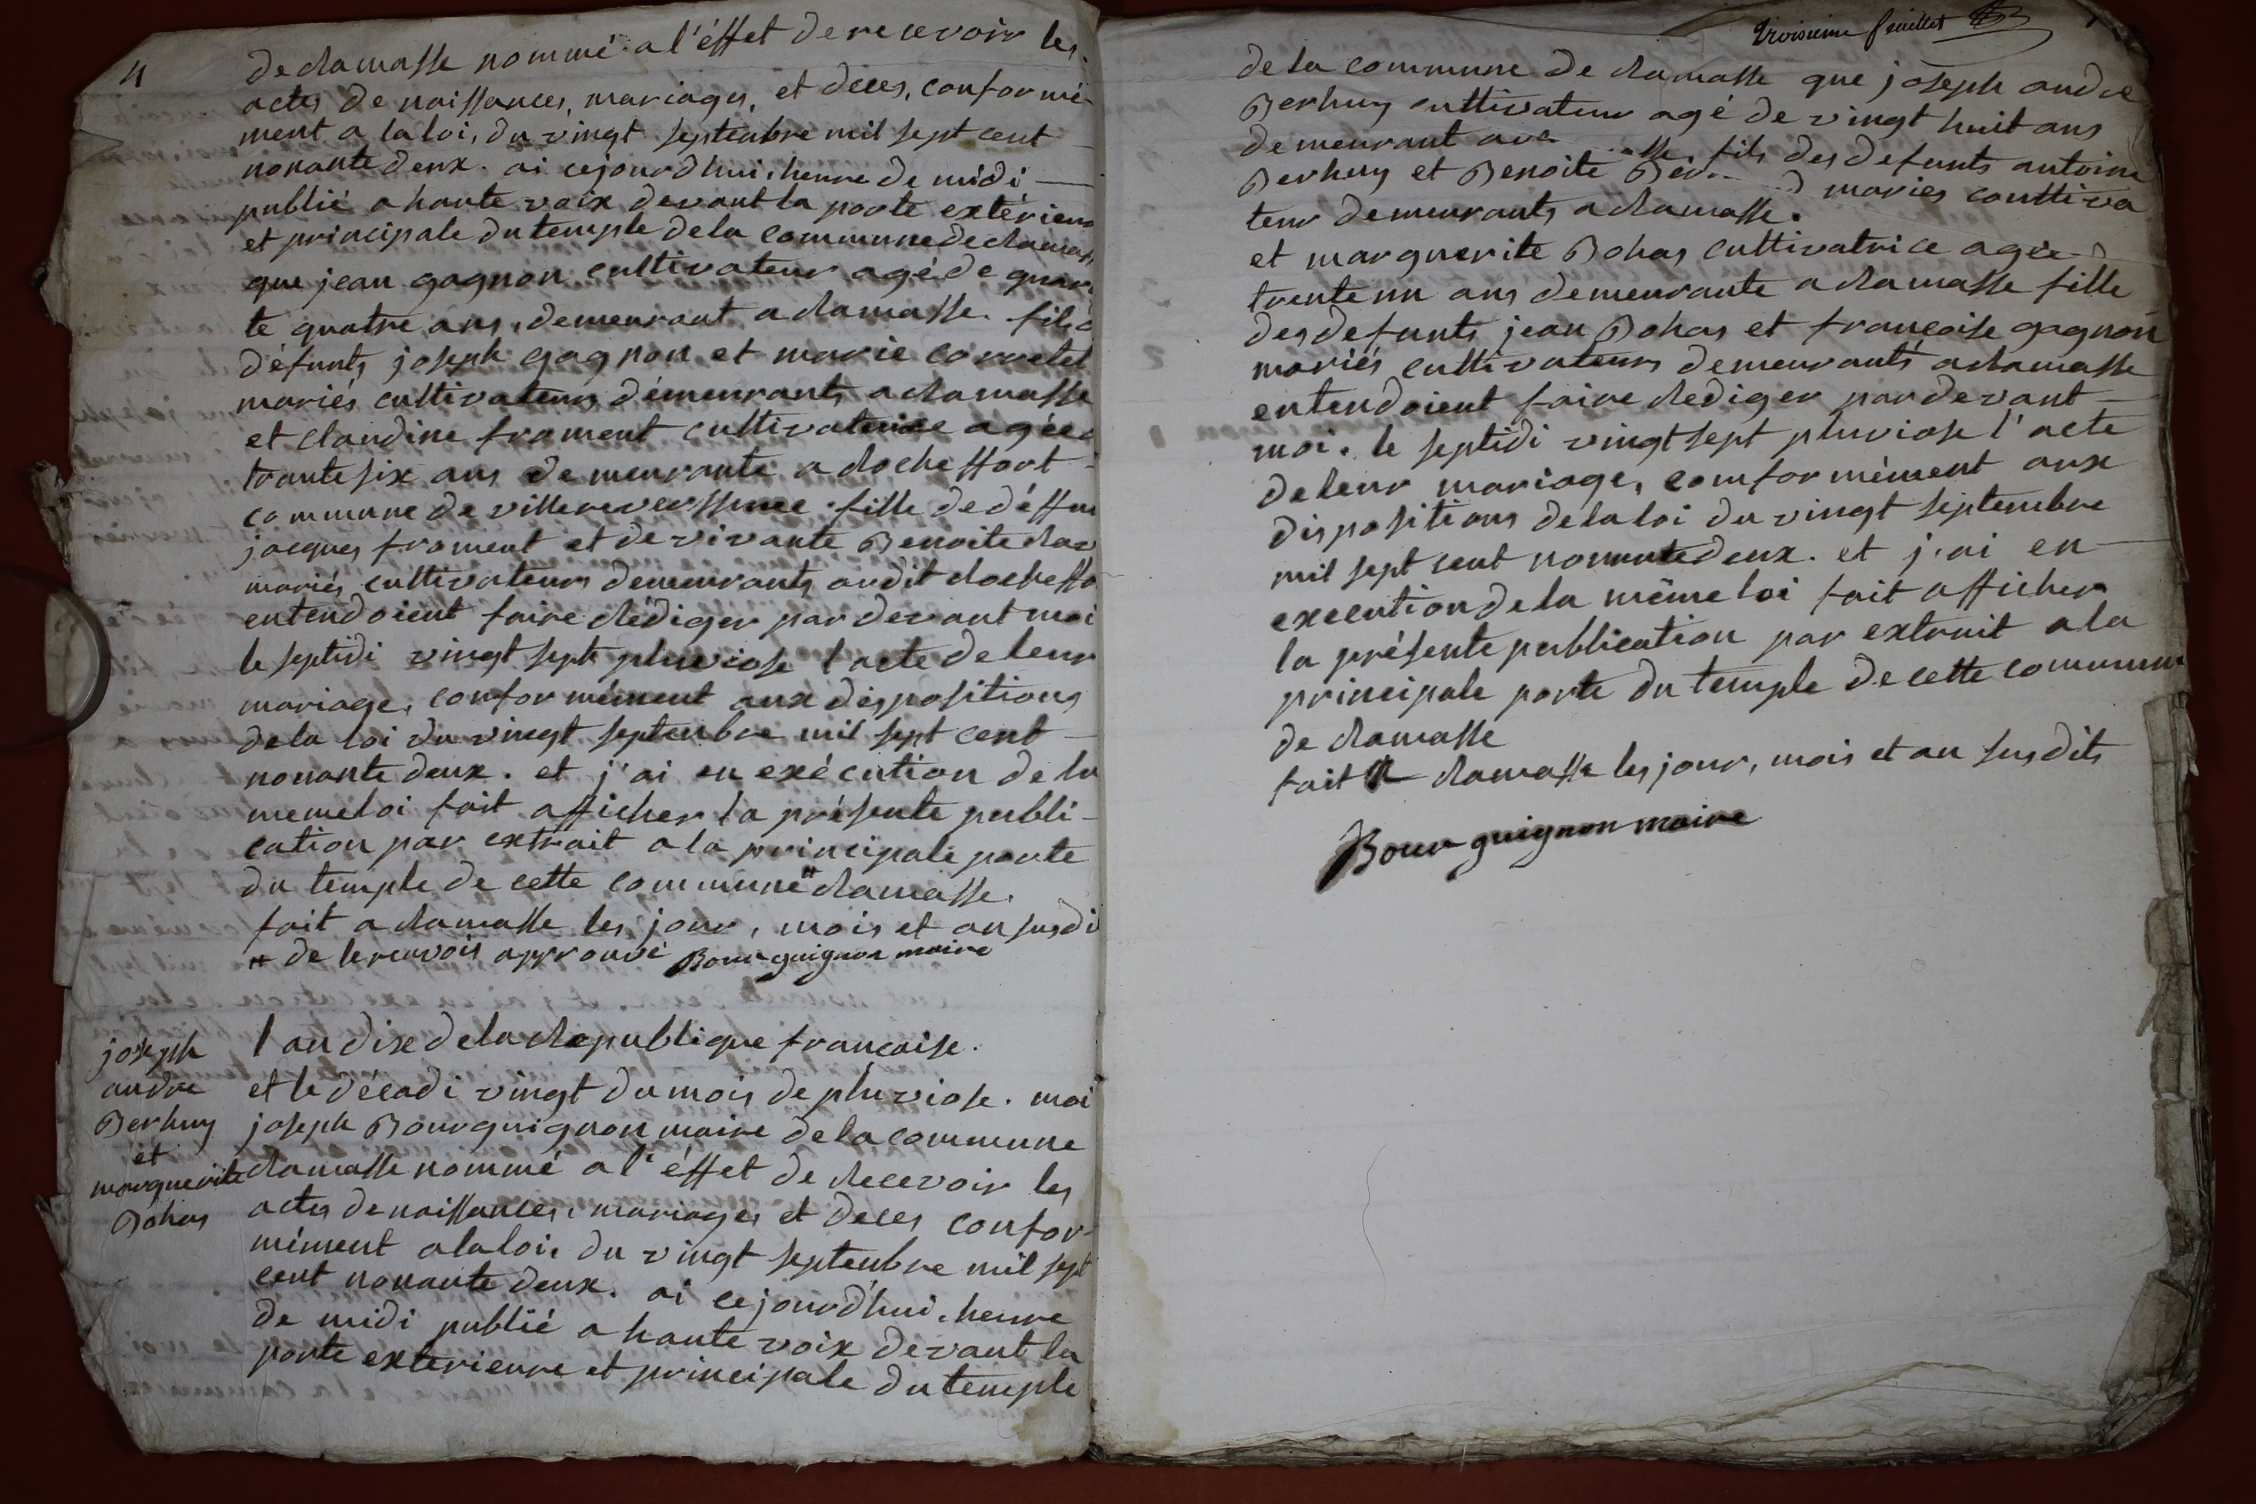 4
de Ramasse nommé a l'éffet de recevoir les
actes de naissances, mariages, et deces, conformé-
ment a la loi, du vingt septenbre mil sept cent
nonante deux. ai cejourdhui, heure de midi
publié a haute voix devant la porte extérieure
et principale du temple de la commune de Ramasse
que jean gagnon cultivateur agé de quara
te quatre ans, demeurant a Ramasse. fils d
défunts joseph gagnon et marie corretel
mariés cultivateurs démeurants a Ramasse
et claudine froment cultivatrice agée d
trante six ans demeurante a Rocheffort
commune de villereverssure. fille de déffun
jacques froment et de vivante Benoite Rav
mariés cultivateurs demeurants audit Rocheffo
entendoient faire Rédiger par devant moi
le septidi vingt sept pluviose l'acte de leur
mariage, conformément aux dispositions
de la loi du vingt septenbre mil sept cent
nonante deux. et j'ai en exécution de la
meme loi fait afficher la présente publi-
cation par extrait a la principale porte
du temple de cette commune # Ramasse.
fait a Ramasse les jour, mois et an susdi
# de le renvois approuvé Bourguignon maire
joseph
andre
Berhuy
et
marguerite
Bohas
l'an dix de la Republique francaise.
et le décadi vingt du mois de pluviose. moi
joseph Bourguignon maire de la commune
Ramasse nommé a l'éffet de Recevoir les
actes de naissances, mariages et deces confor-
mément a la loi, du vingt septenbre mil sept
cent nonante deux. ai cejourd'hui, heure
de midi publié a haute voix devant la
porte exterieure et principale du temple
troisieme feuillet
de la commune de Ramasse que joseph andre
Berhuy cultivateur agé de vingt huit ans
demeurant fils des defunts antoine
Berhuy et Benoite mariés coultiva
teur demeurants a Ramasse.
et marguerite Bohas cultivatrice agée d
trente un ans demeurante a Ramasse fille
des defunts jean Bohas et francoise gagnon
mariés cultivateurs demeurants a Ramasse
entendoient faire Rediger par devant
moi. le septidi vingt sept pluviose l'acte
de leur mariage, comformément aux
dispositions de la loi du vingt septembre
mil sept cent nonante deux. et j'ai en
execution de la même loi fait afficher
la présente publication par extrait a la
principale porte du temple de cette commune
de Ramasse
fait a Ramasse les jour, mois et an susdits
Bourguignon maire